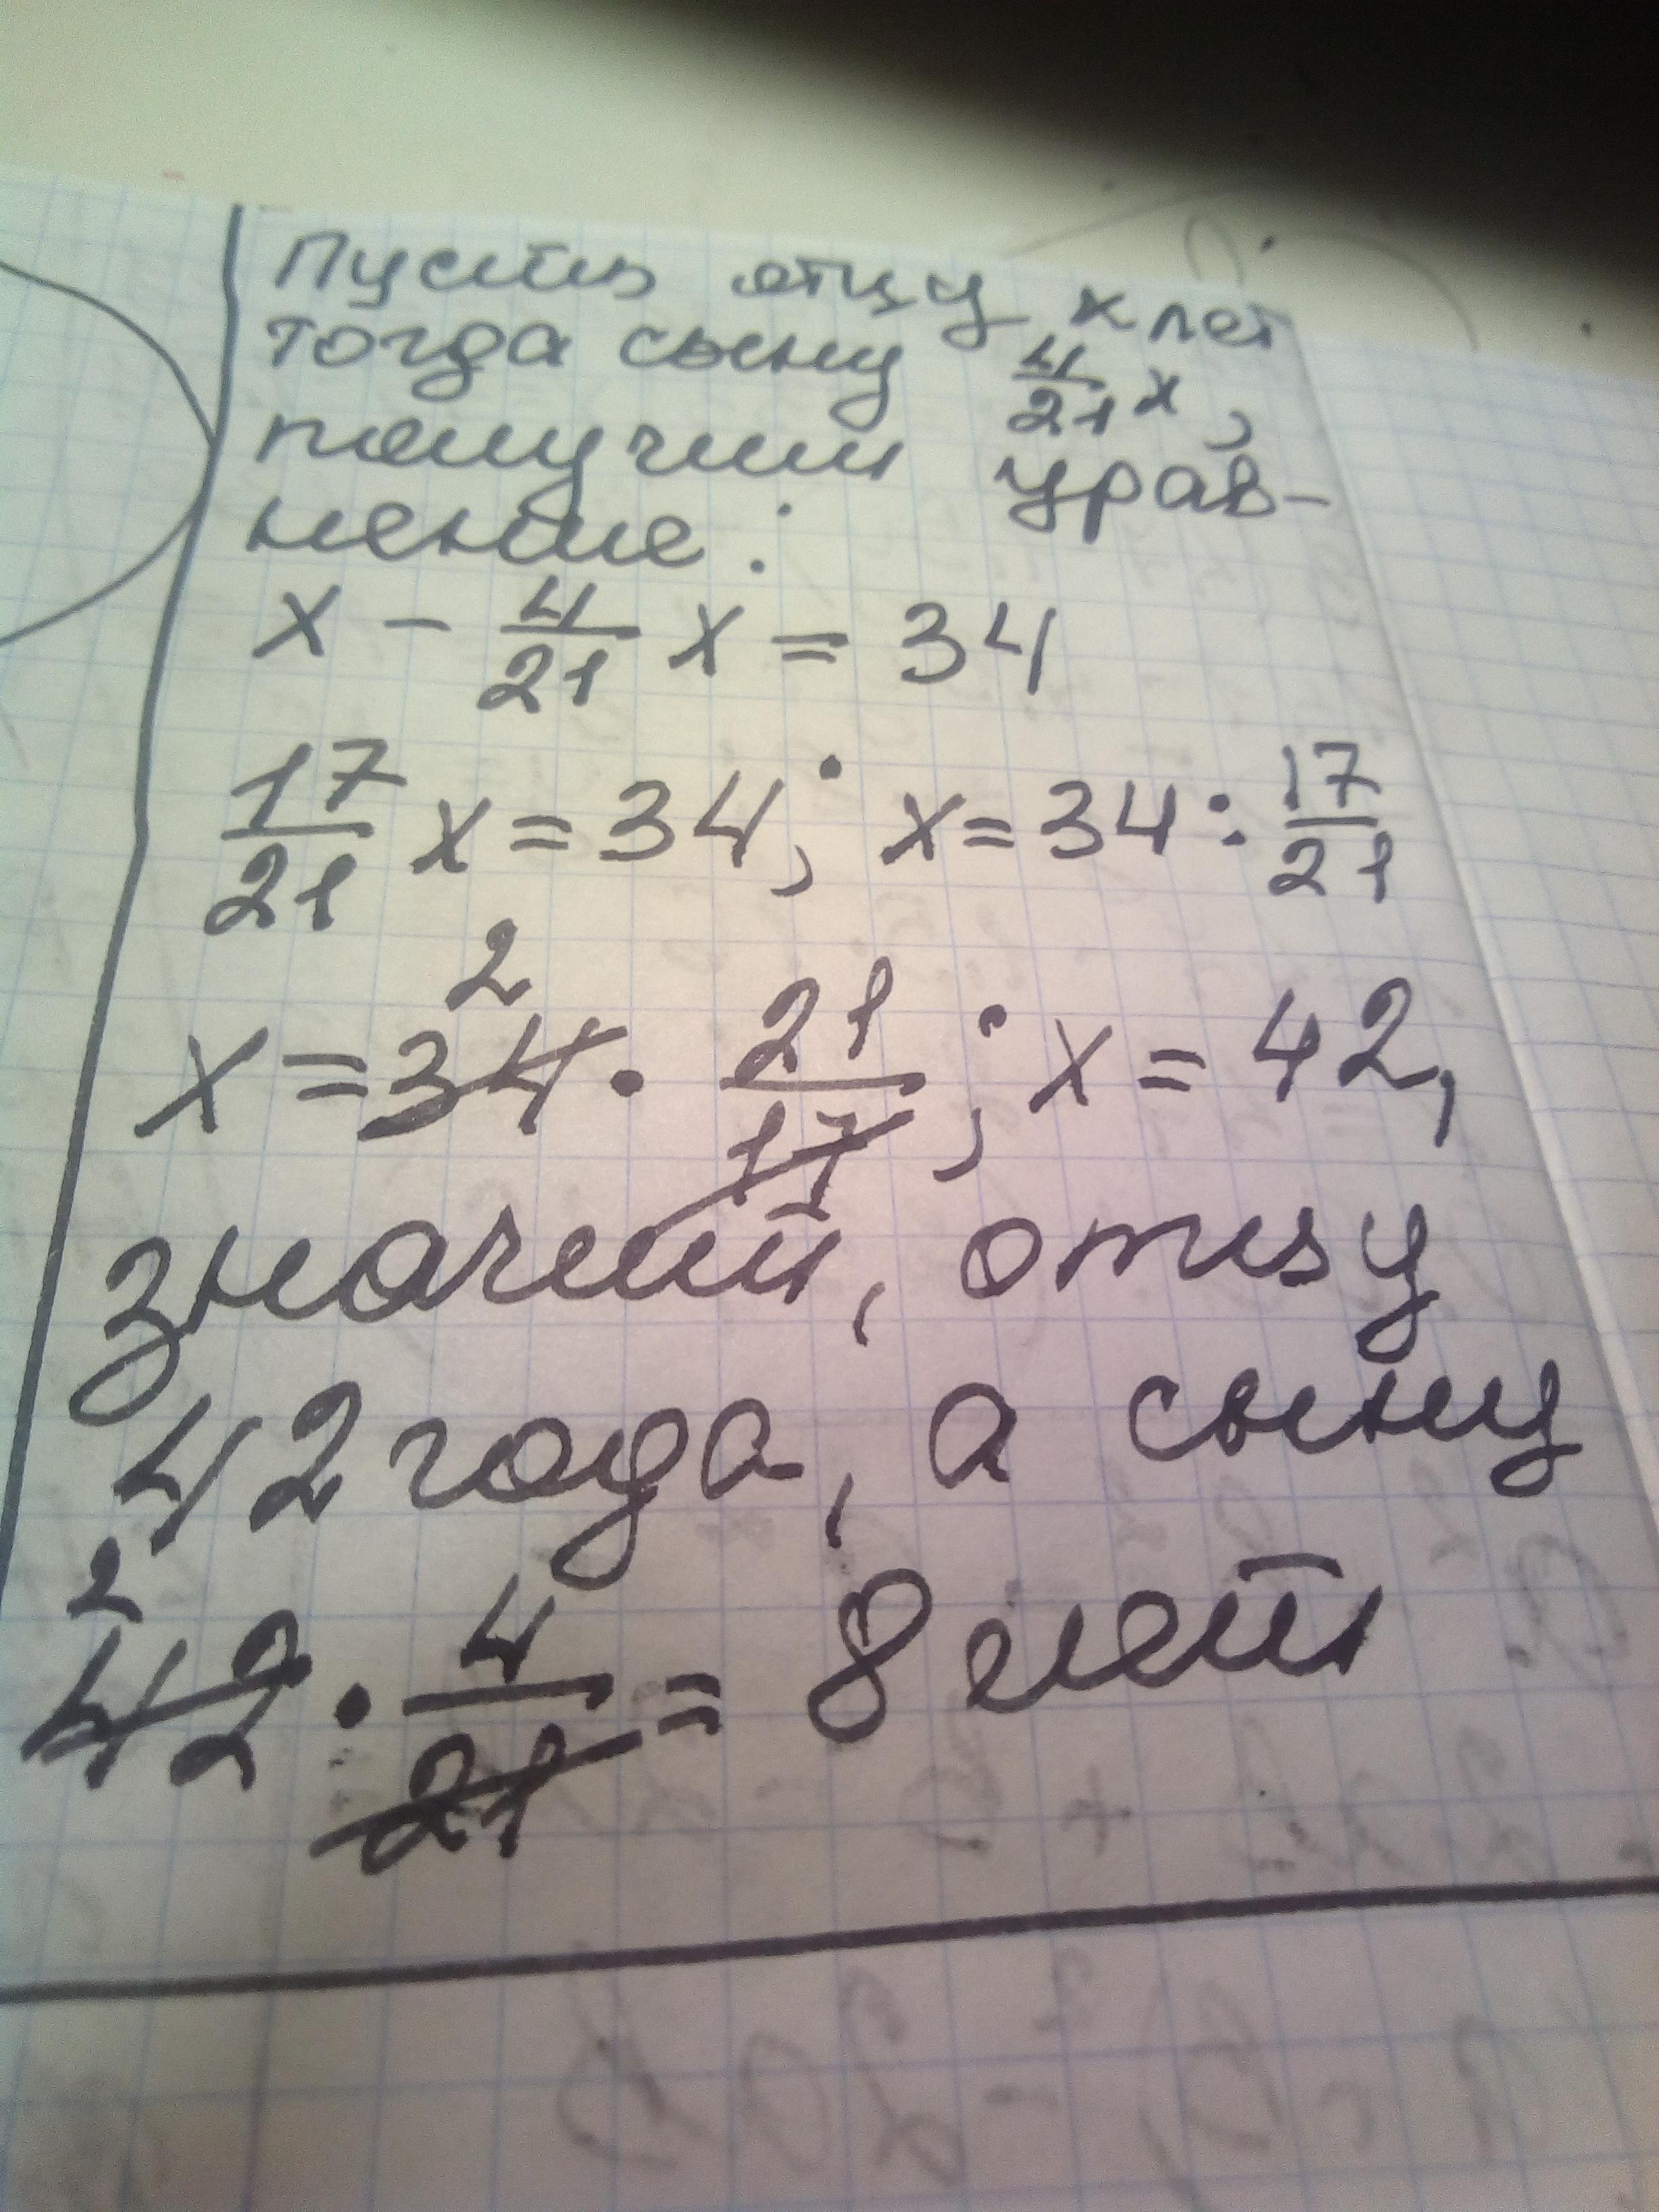 Пусть отцу x лет
тогда сыну 4/21 x,
получим урав-
нение:
x - 4/21 x = 34
17/21 x = 34; x = 34 : 17/21
2
x = 34 · 21/17; x = 42,
значит, отцу
42 года, а сыну
2
42 · 4/21 = 8 лет